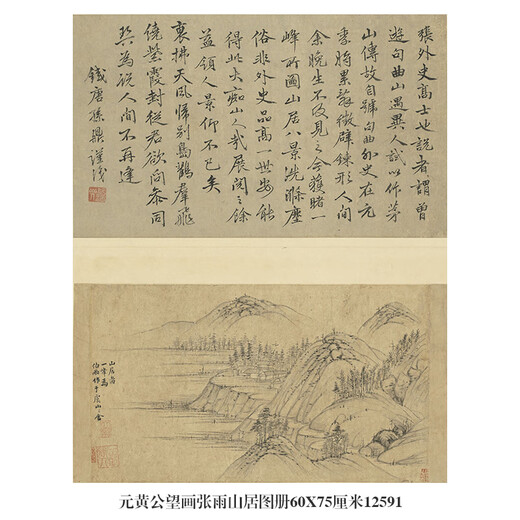 張外史高士也說者謂曾
遊句曲山遇異人試以作茅
山傳故自號句曲外史在元
季時累辭徵辟鍊形人間
余晚生不及見之今獲睹一
峰所圖山居八景洗滌塵
俗非外史品高一世安能
得此大癡山人哉展閱之餘
益領人景仰不已矣
裏拂天風歸別島鶴羣飛
繞紫霞封從君欲問參同
契為說人間不再逢
錢唐孫鼎謹識
山居圖
一峯為
伯雨作于
元黄公望画张雨山居图册60X75厘米12591